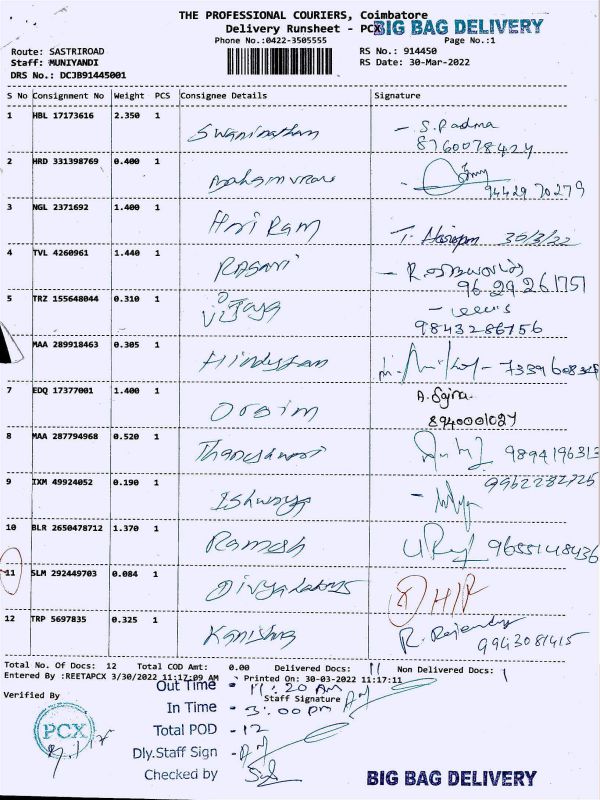 THE PROFESSIONAL COURIERS, Coimbatore
Delivery Runsheet - PCX
BIG BAG DELIVERY
Phone No.:0422-3505555
Page No.:1
Route: SASTRIROAD
RS No.: 914450
Staff: MUNIYANDI
RS Date: 30-Mar-2022
DRS No.: DCJB91445001
S No Consignment No Weight PCS Consignee Details Signature
1 HBL 17173616 2.350 1 Swaminathan - S. Padma
8760078424
2 HRD 331398769 0.400 1
94429 70279
3 NGL 2371692 1.400 1 Hari Ram T. 30/3/22
4 TVL 4260961 1.440 1 - R.
96 29 26 1751
5 TRZ 155648044 0.310 1 Vijaya
9843286756
MAA 289918463 0.305 1 Hindustan
7 EDQ 17377001 1.400 1 A. Sajna.
8940001027
8 MAA 287794968 0.520 1 9894196313
9 IXM 49924052 0.190 1 Ishwarya 9962232725
10 BLR 2650478712 1.370 1 Ramesh 9655148436
11 SLM 292449703 0.084 1
12 TRP 5697835 0.325 1 Kanishka R.
9943081415
Total No. Of Docs: 12 Total COD Amt: 0.00 Delivered Docs: 11 Non Delivered Docs: 1
Entered By :REETAPCX 3/30/2022 11:17:09 AM Printed On: 30-03-2022 11:17:11
Out Time - 11:20 AM
Verified By
Staff Signature
In Time - 3:00 pm
PCX
Total POD - 12
Dly.Staff Sign -
Checked by
BIG BAG DELIVERY